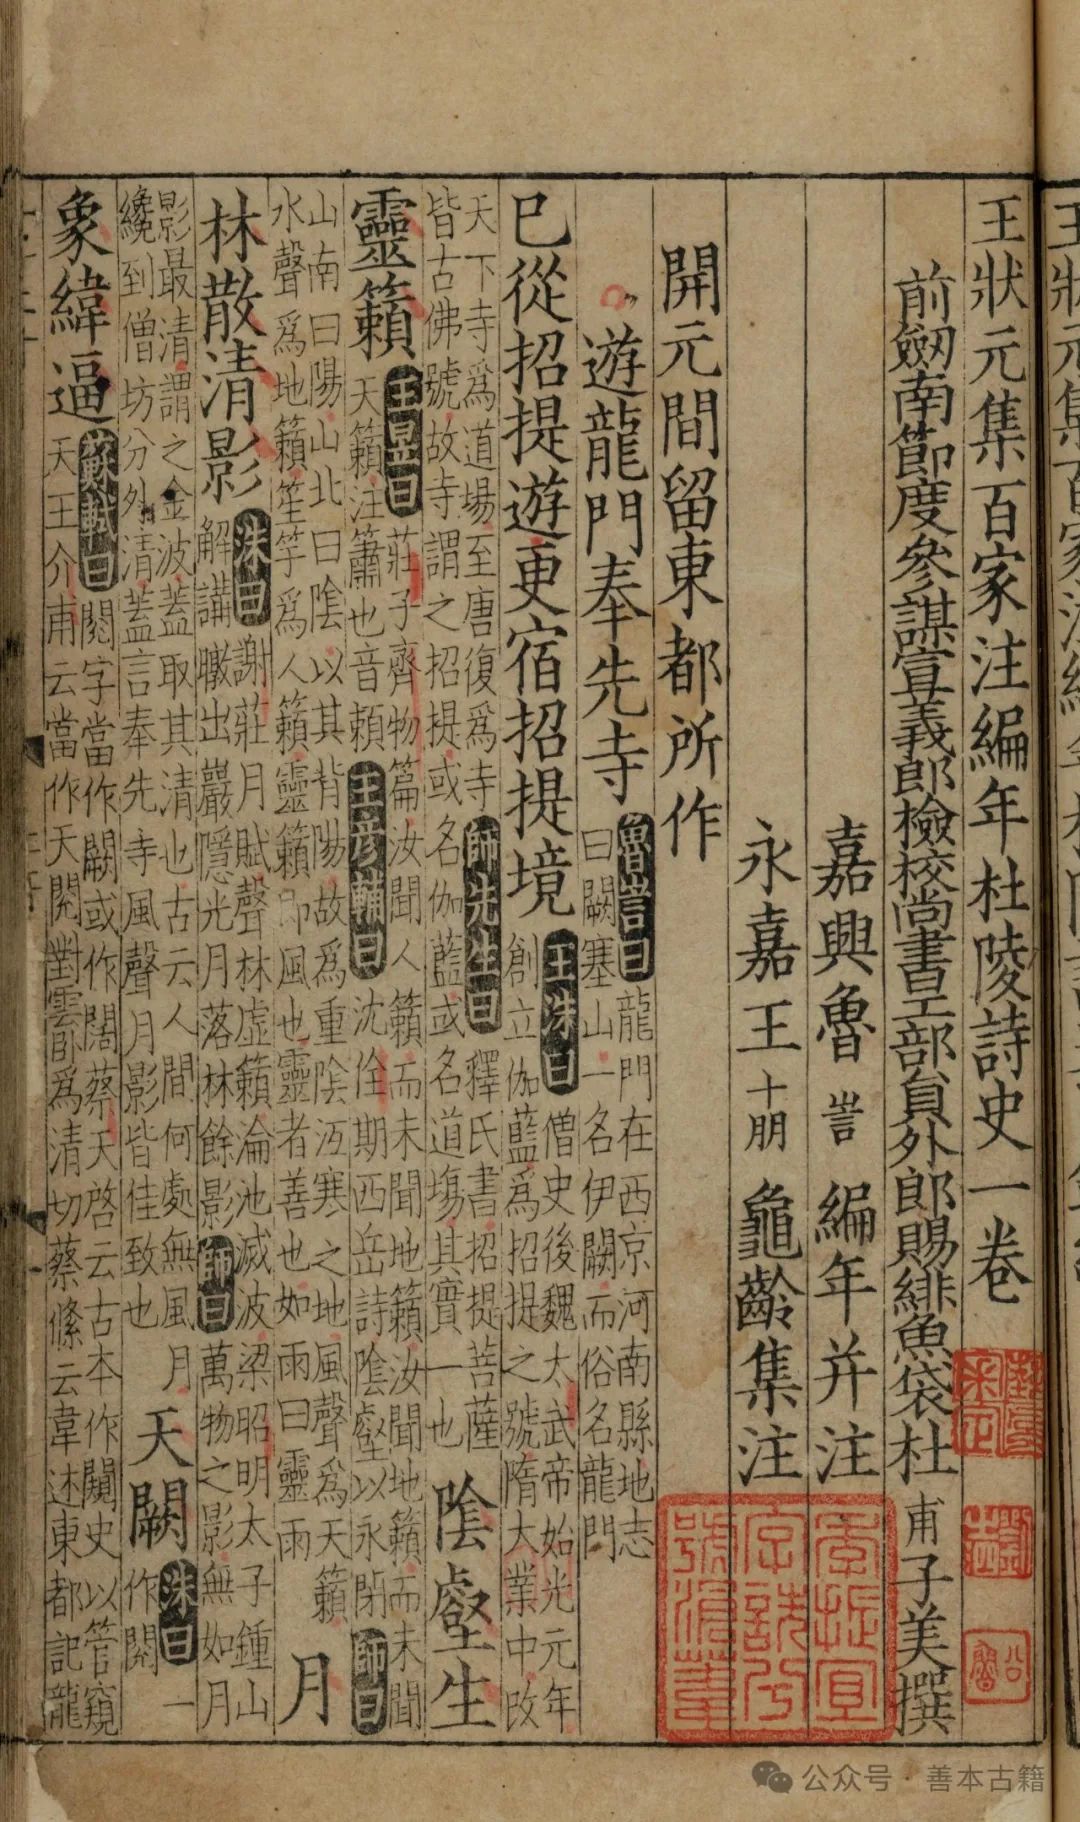 王狀元集百家注編年杜陵詩史一卷
前劒南節度參謀宣義郎檢校尚書工部員外郎賜緋魚袋杜甫子美撰
嘉興魯訔編年并注
永嘉王十朋龜齡集注
開元間留東都所作
遊龍門奉先寺
魯訔曰龍門在西京河南縣地志
曰闕塞山一名伊闕而俗名龍門
已從招提遊更宿招提境
王洙曰僧史後魏太武帝始光元年
創立伽藍爲招提之號隋大業中改
天下寺爲道場至唐復爲寺師先生曰釋氏書招提菩薩
皆古佛號故寺謂之招提或名伽藍或名道塲其實一也
陰壑生
靈籟
王昱曰莊子齊物篇汝聞人籟而未聞地籟汝聞地籟而未聞
天籟注簫也音頼王彥輔曰沈佺期西岳詩陰壑以永閉師曰
山南曰陽山北曰陰以其背陽故爲重陰沍寒之地風聲爲天籟
水聲爲地籟笙竽爲人籟靈籟即風也靈者善也如雨曰靈雨
月
林散清影
洙曰謝莊月賦聲林虛籟淪池滅波梁昭明太子鍾山
解講暾出巖隱光月落林餘影師曰萬物之影無如月
影最清謂之金波蓋取其清也古云人間何處無風月
纔到僧坊分外清蓋言奉先寺風聲月影皆佳致也
天闕
洙曰一
作閱
象緯逼
蘇軾曰閱字當作闕或作闊蔡天啓云古本作闚史以管窺
天王介甫云當作天閱對雲卧爲清切蔡絛云韋述東都記龍
公众号·善本古籍